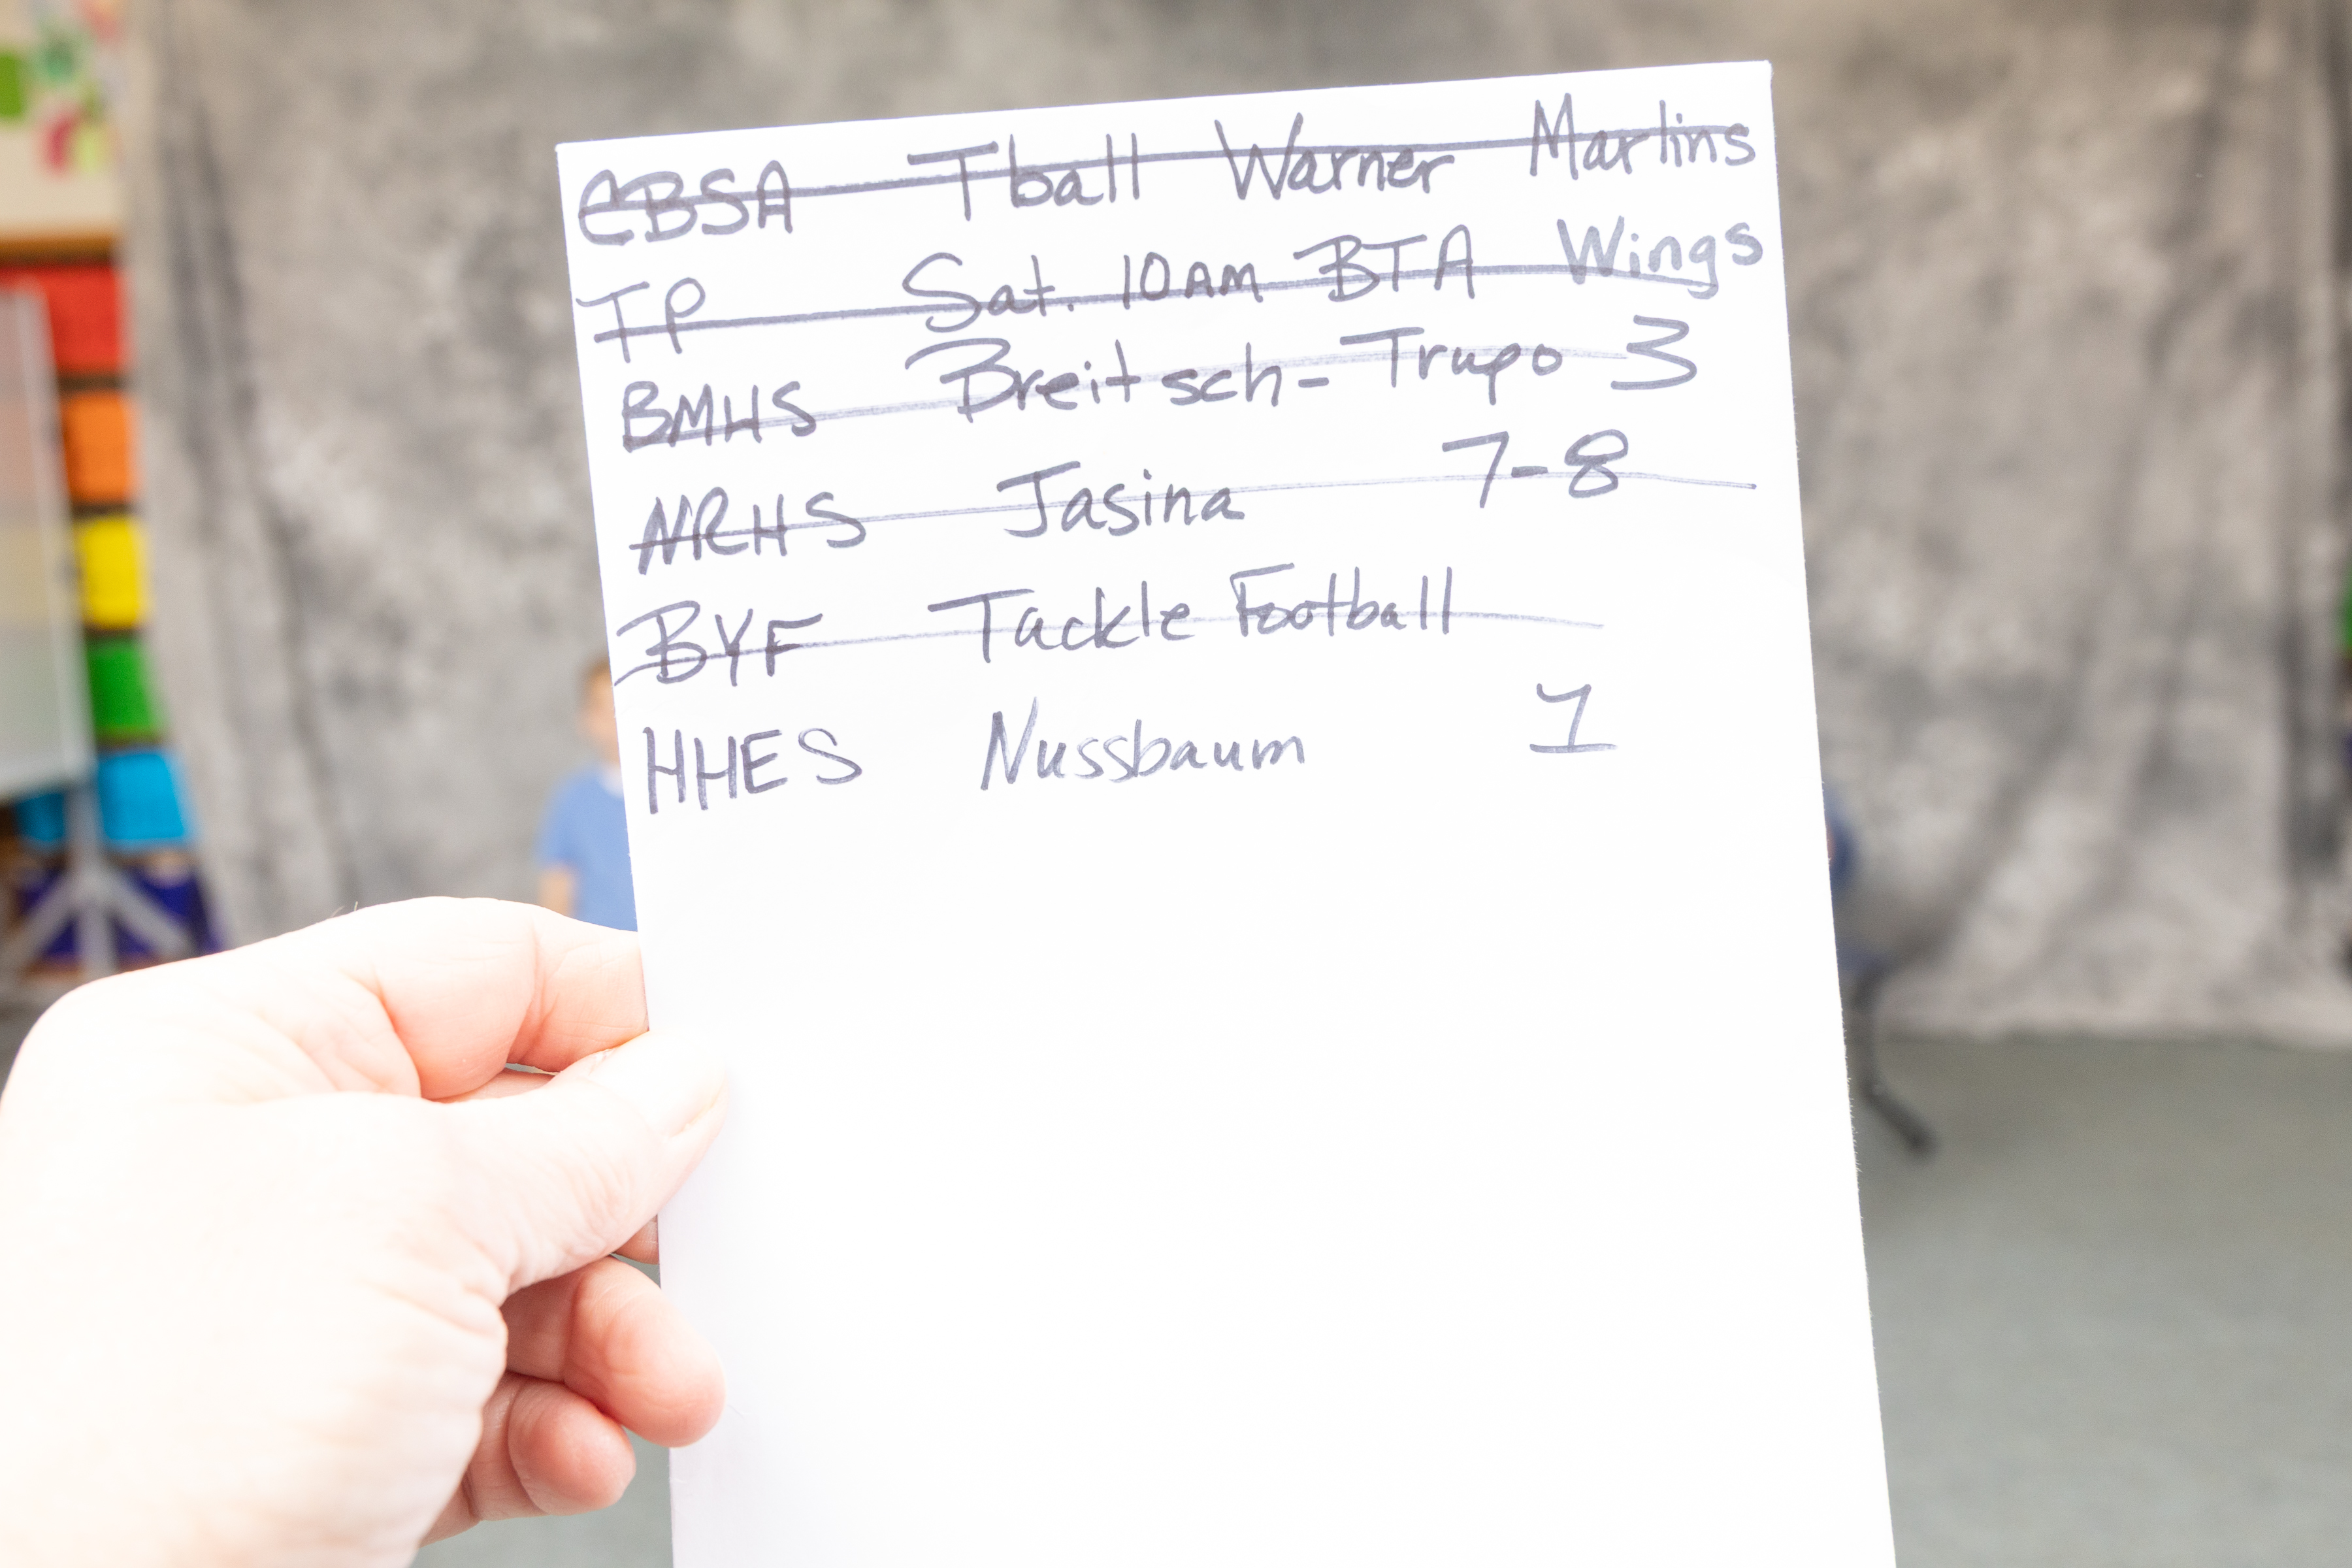 CBSA Tball Warner Marlins
TP Sat. 10AM BTA Wings
BMHS Breitsch-Trupo 3
NRHS Jasina 7-8
BYF Tackle Football
HHES Nussbaum 1